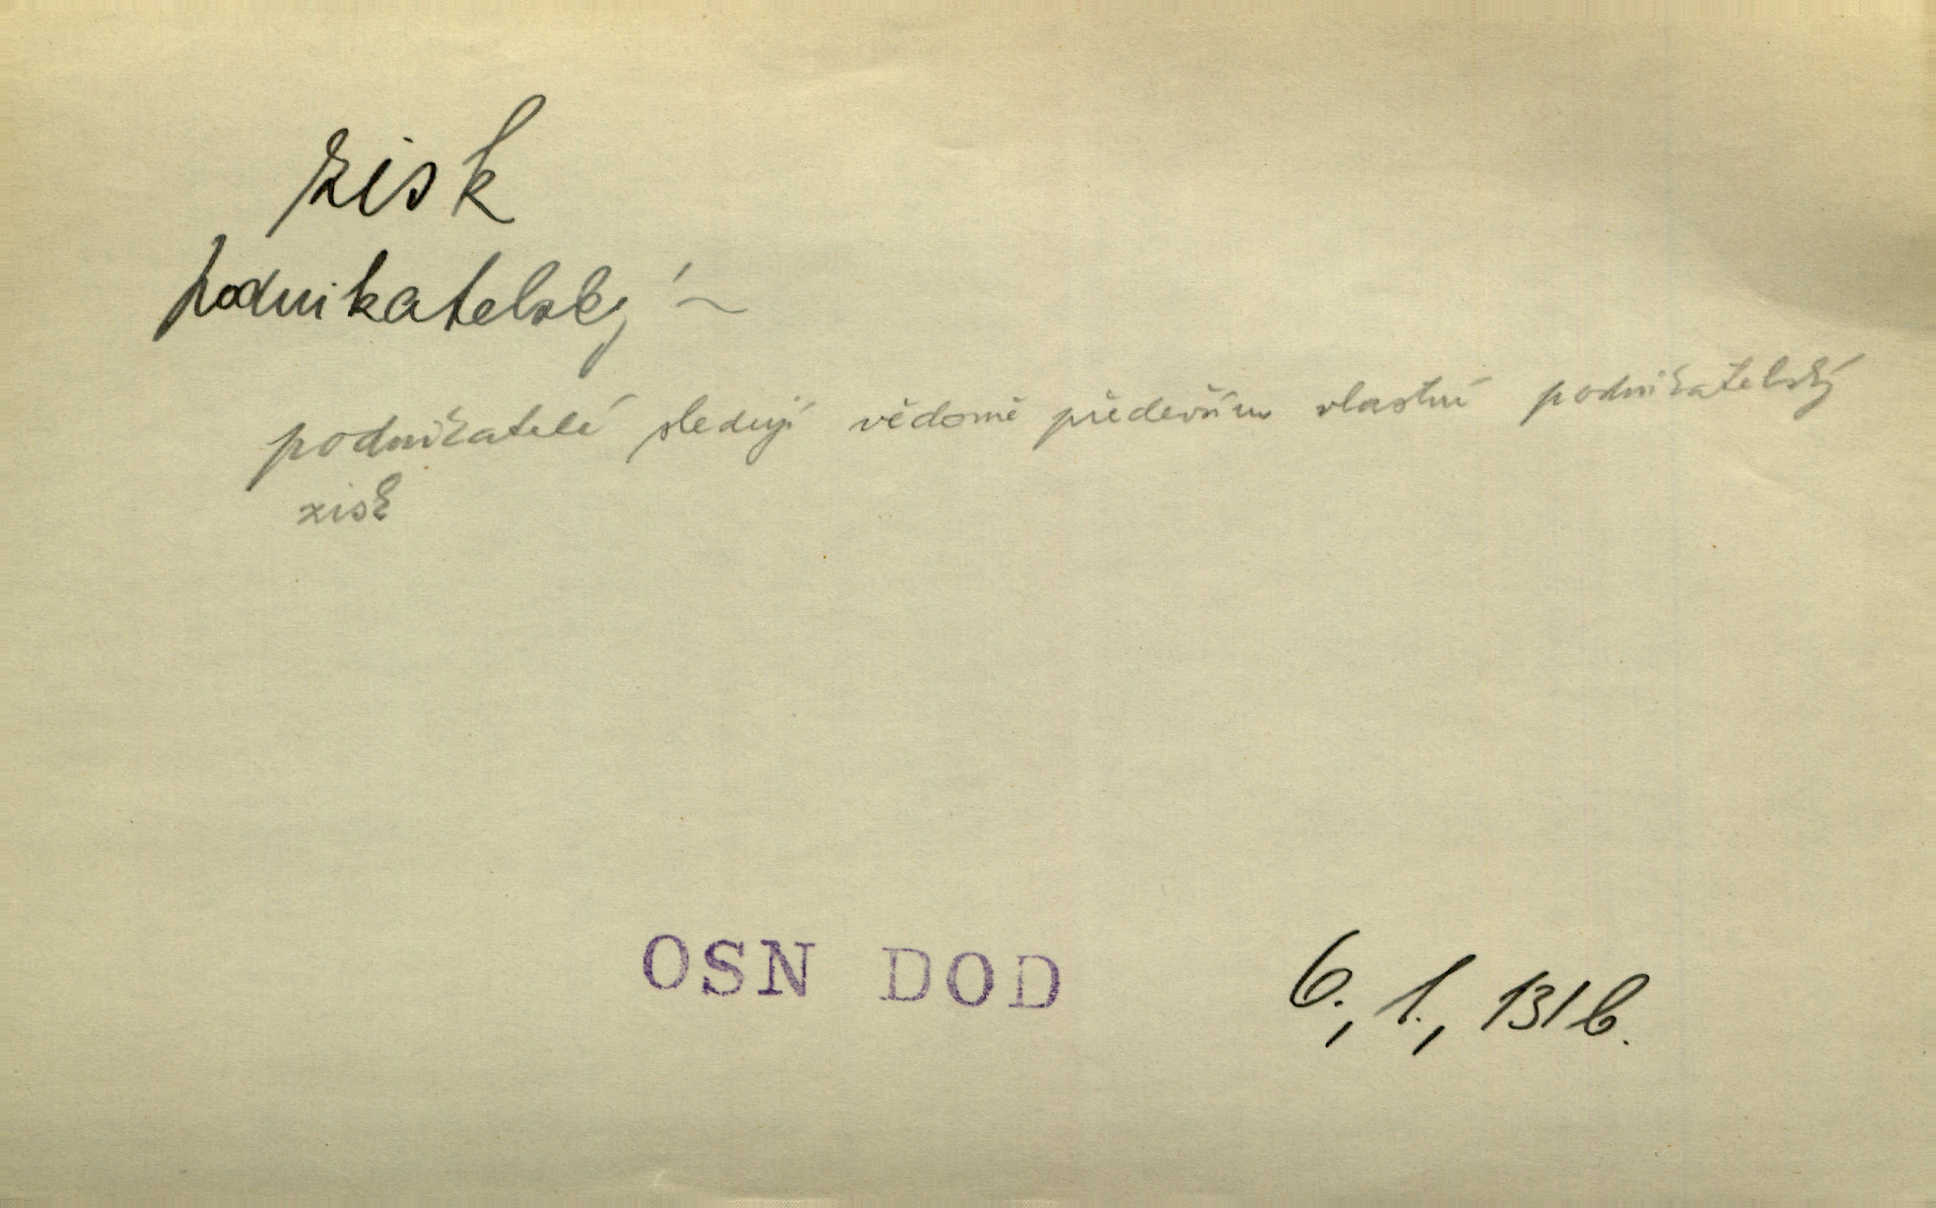 zisk
podnikatelský ~
podnikatelé sledují vědomě především vlastní podnikatelský
zisk
OSN DOD 6., 1., 131 b.